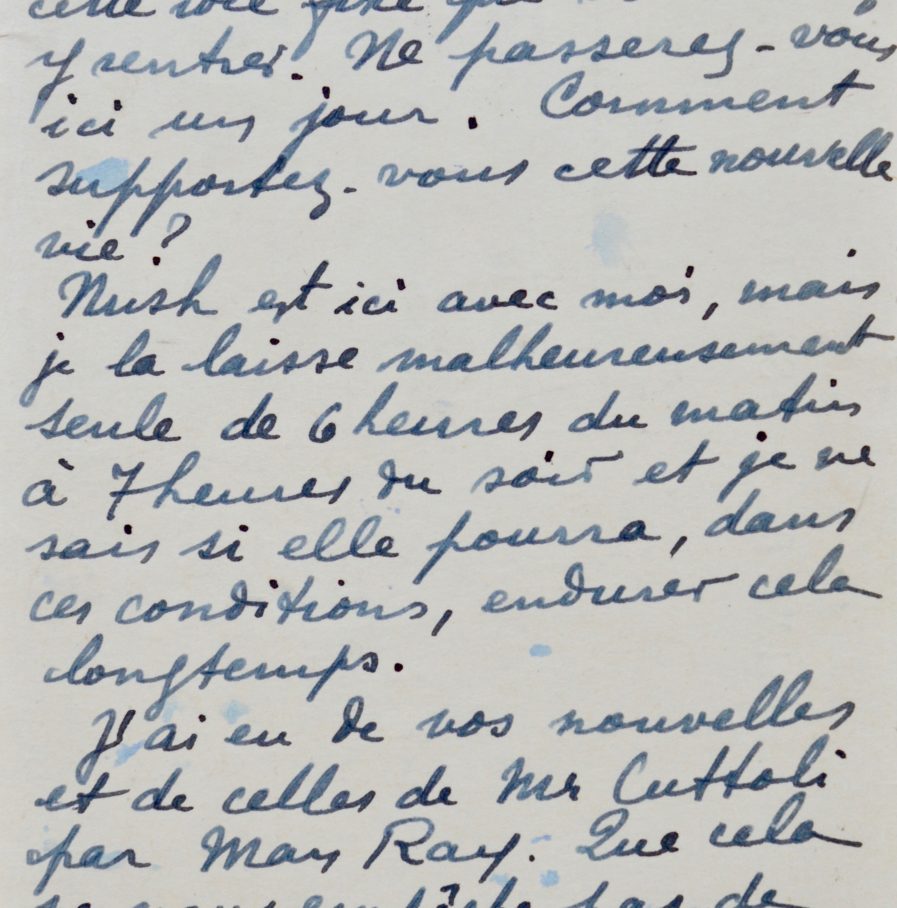 cette
y rentrer. Ne passerez-vous
ici un jour. Comment
supportez-vous cette nouvelle
vie ?
Nush est ici avec moi, mais
je la laisse malheureusement
seule de 6 heures du matin
à 7 heures du soir et je ne
sais si elle pourra, dans
ces conditions, endurer cela
longtemps.
J'ai eu de vos nouvelles
et de celles de Mr Cuttoli
par Man Ray. Que cela
pas de